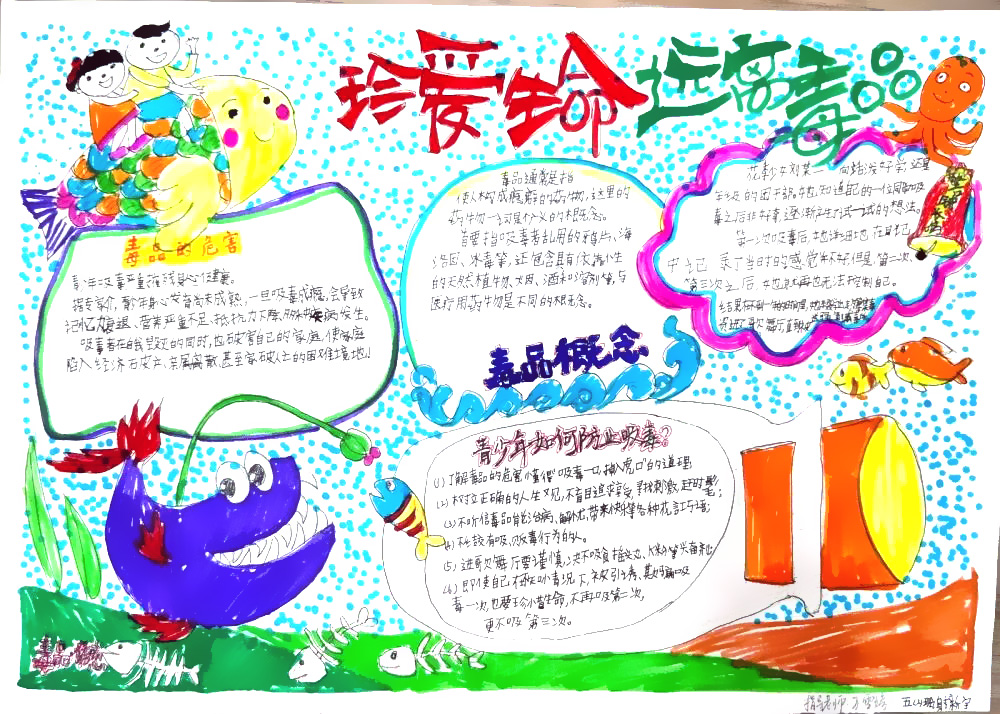 珍爱生命 远离毒品
毒品的危害
青少年吸毒严重摧残身心健康。
指专家介,青少年身心发育尚未成熟,一旦吸毒成瘾,会导致
记忆力衰退、营养严重不足、抵抗力下降
吸毒者在自我毁灭的同时,也破害自己的家庭,使家庭
陷入经济破产、亲属离散、甚至家破人亡的困难境地!
毒品通常是指
使人构成瘾癖的药物,这里的
药物一词是个广义的概念。
首要指吸毒者乱用的鸦片、海
洛因、冰毒等,还包含具有依赖性
的天然植物、水因、酒和溶剂等,与
医疗用药物是不同的概念。
毒品概念
花季少女刘某一向
年级的团干部
毒之后非好奇,逐渐产生了试一试的想法。
第一次吸毒后,她详细地在日记
中记录了当时的感觉并不好,但是第二次、
第三次之后,她就再也无法控制自己。
青少年如何防止吸毒?
(1)了解毒品的危害,懂得“吸毒一口,掉入虎口”的道理;
(2)树立正确的人生观,不盲目追求享受,寻找刺激,赶时髦;
(3)不听信毒品能治病、解忧,带来快乐等各种花言巧语;
(4)不结交有吸、贩毒行为的人。
(5)进歌舞厅要谨慎,决不吸食摇头丸、K粉等兴奋剂;
(6)即使自己在不知情况下,被引诱、欺骗吸
毒一次,也要珍惜生命,不再吸第二次,
更不吸第三次。
指导老师